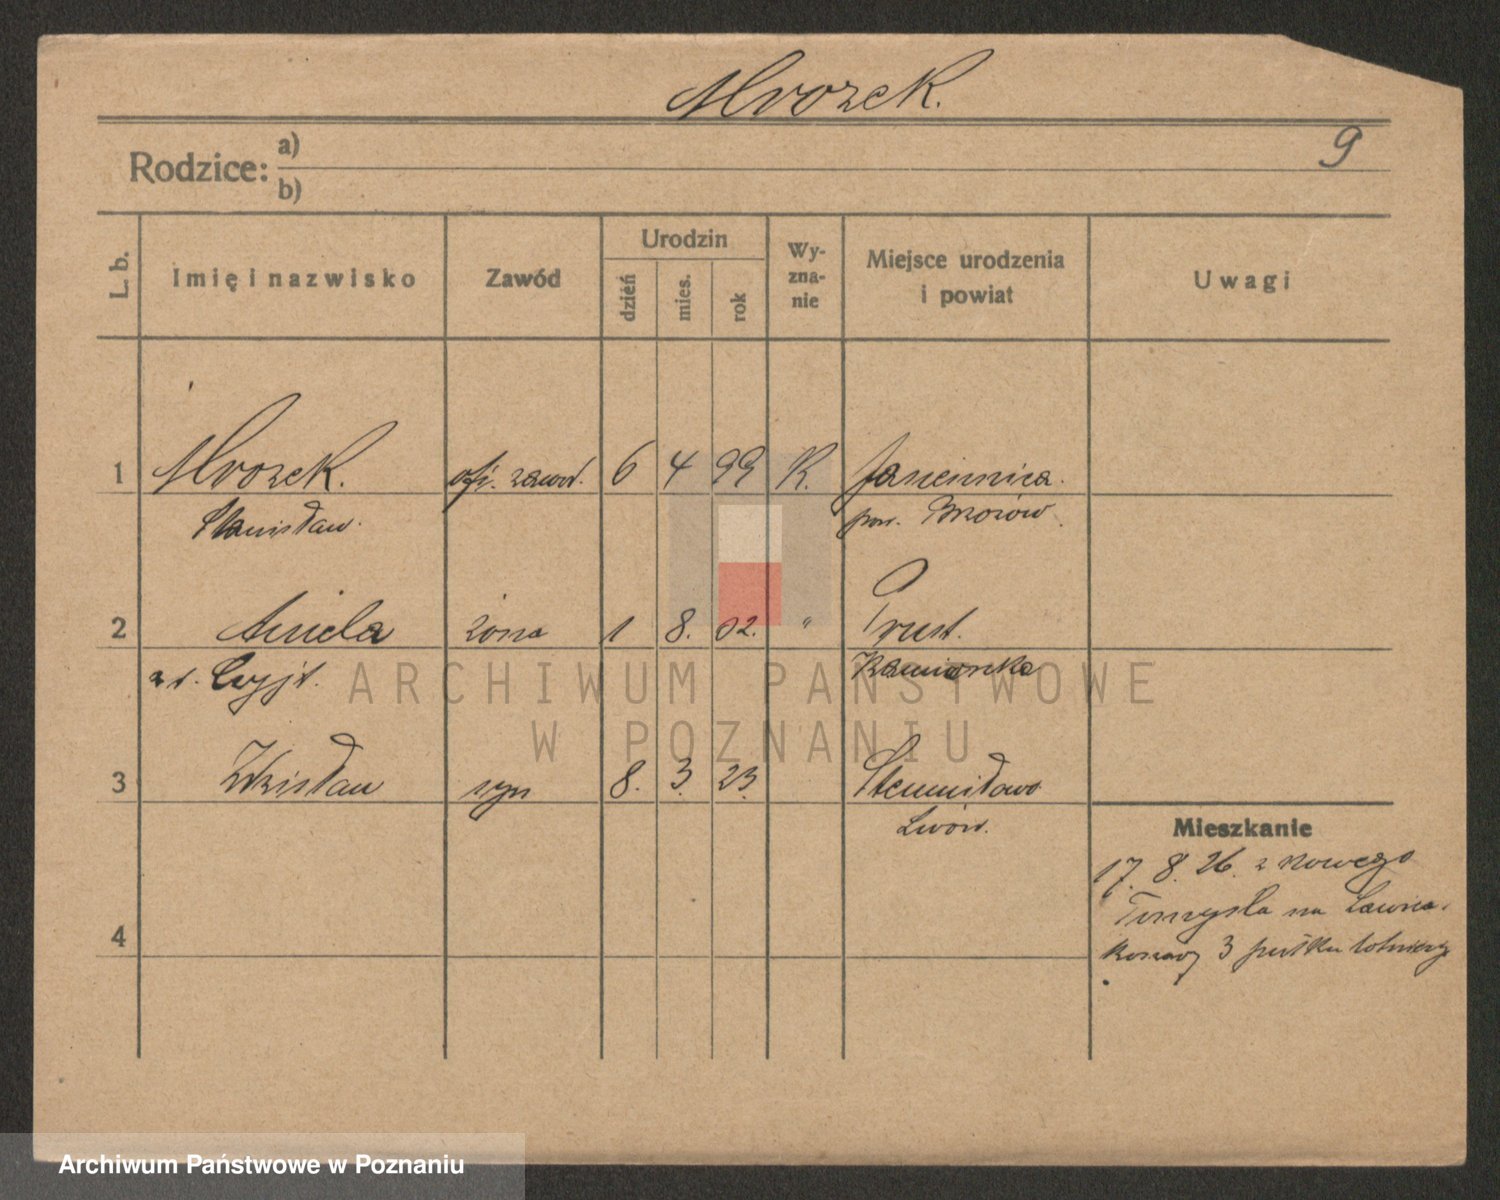 Mrozek.
9
Rodzice: a)
b)
L. b. Imię i nazwisko Zawód Urodzin dzień mies. rok Wy-zna-nie Miejsce urodzenia i powiat Uwagi
1 Mrozek. ofi. zawod. 6 4 99 R. Jasienica.
Stanisław. pow. Brzozów.
2 Aniela żona 1 8. 02. " Prust.
z d. Kamionka
ARCHIWUM PAŃSTWOWE
W POZNANIU
3 Zdzisław syn 8. 3. 23.
Lwów.
Mieszkanie
17. 8. 26. z Nowego
Tomyśla na Ławica.
Koszary 3 pułku lotniczy
4
Archiwum Państwowe w Poznaniu